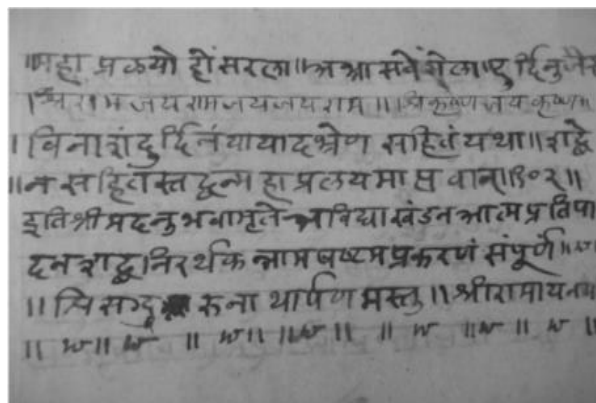 ॥महा प्रळयो हों सरला॥अआ सवें गेला॥ दुर्दिनु जैसा
।श्रीराम जय राम जय जय राम॥ श्रीकृष्ण जय कृष्ण॥
।विनाशं दुर्दिनं यायादभ्रेण सहितं यथा॥शब्दे
॥न सहितस्तद्वन्महाप्रलयमाप्तवान्॥१०२॥
इतिश्रीमदनुभवामृते अविद्याखंडन आत्मप्रतिपा
दन शब्द निरर्थक नाम षष्टम प्रकरणं संपूर्णं॥
॥श्रि सग्दुरुनाथार्पणमस्तु॥श्रीरामायनमः